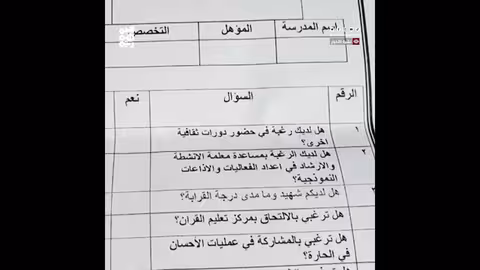 اسم المدرسة المؤهل التخصص
الرقم السؤال نعم
١ هل لديك رغبة في حضور دورات ثقافية
اخرى؟
٢ هل لديك الرغبة بمساعدة معلمة الانشطة
والارشاد في اعداد الفعاليات والاذاعات
النموذجية؟
هل لديكم شهيد وما مدى درجة القرابة؟
هل ترغبي بالالتحاق بمركز تعليم القران؟
هل ترغبي بالمشاركة في عمليات الأحسان
في الحارة؟